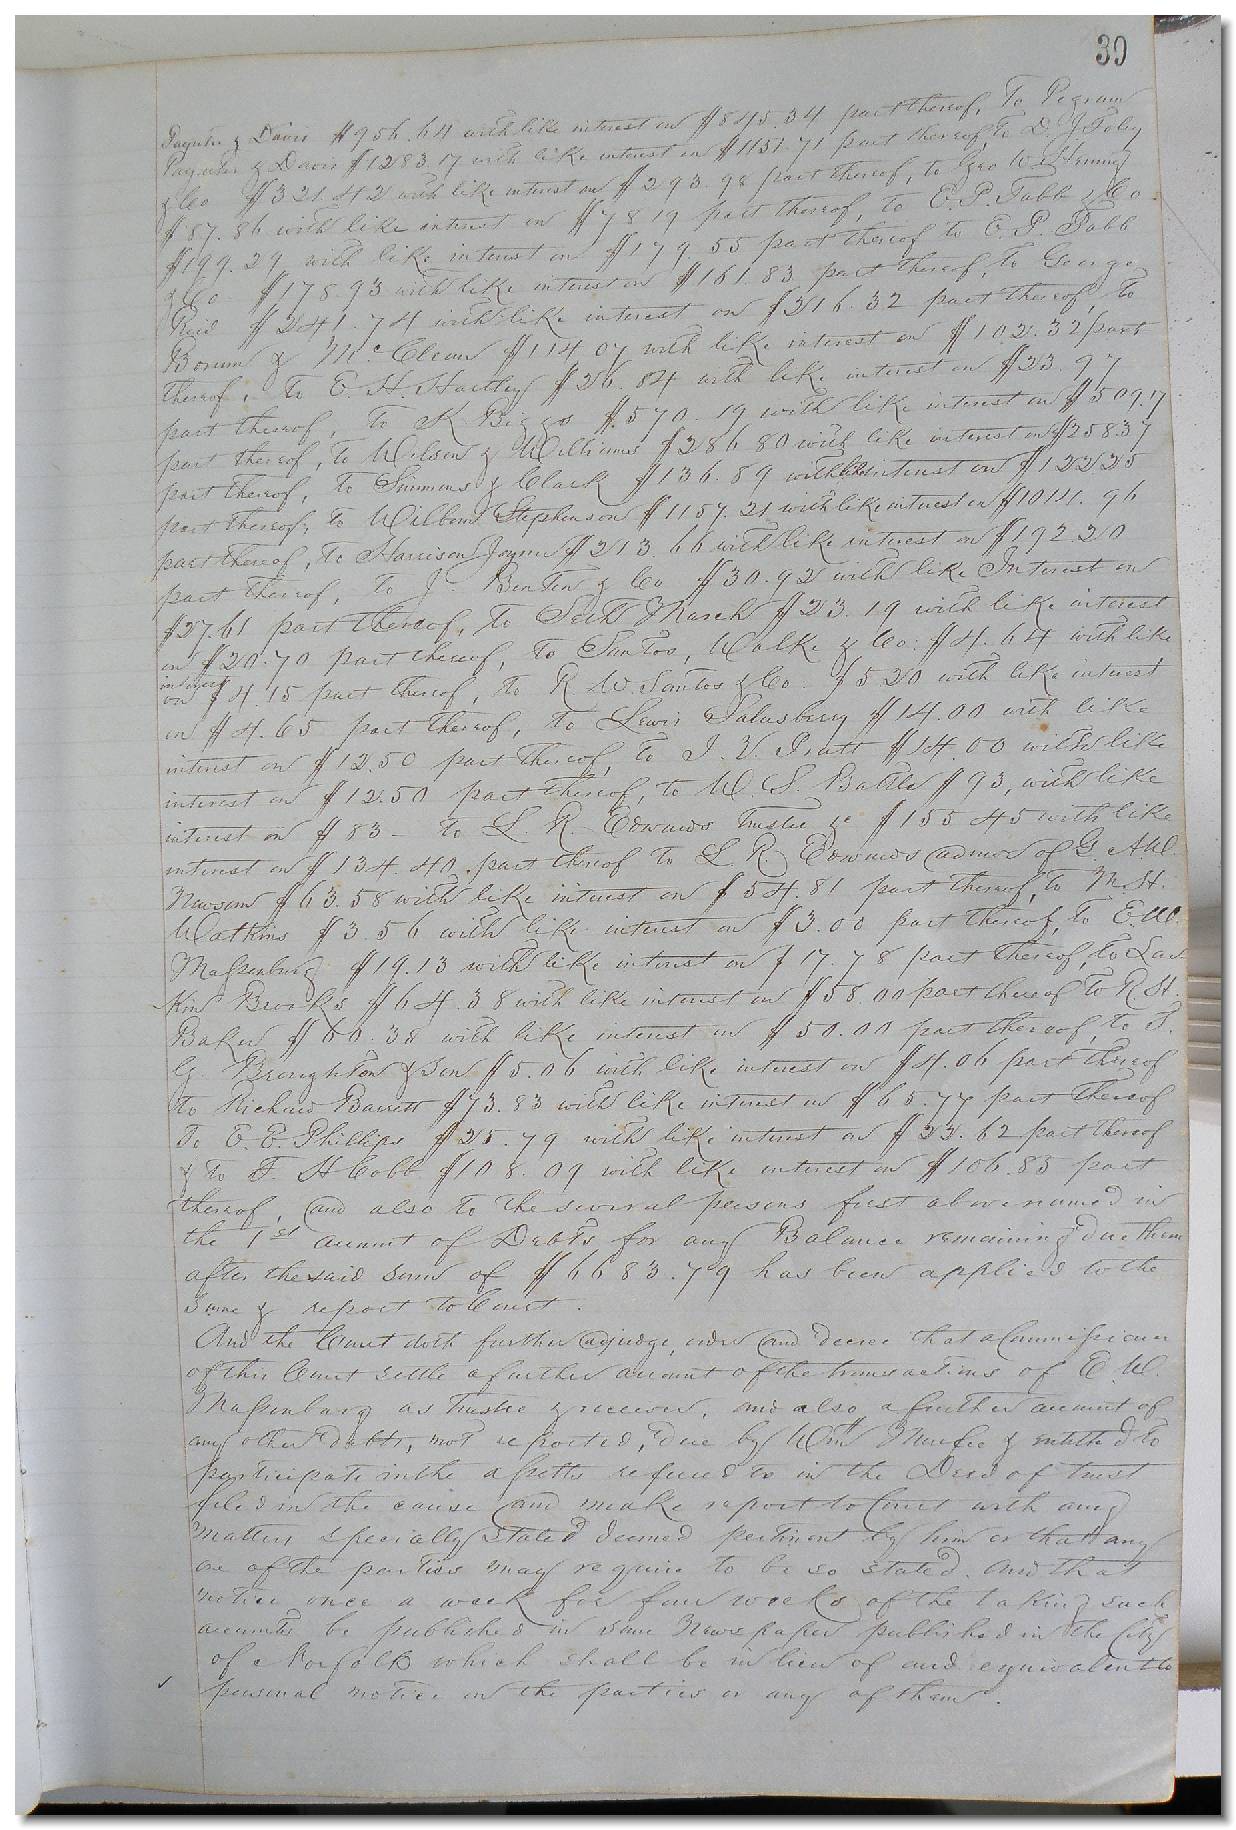 39
Paynter & Davis $956.64 with like interest on $845.34 part thereof, To Pegram
Paynter & Davis $1283.17 with like interest on $1151.71 part thereof, to D. J Toby
& Co $321.42 with like interest on $293.98 part thereof, to Geo W
$87.86 with like interest on $78 19 part thereof, to E. P. Tabb & Co
$199.29 with like interest on $179.55 part thereof to E. P. Tabb
& Co. $178.93 with like interest on $161.83 part thereof, to George
Reid $241.74 with like interest on $216.32 part thereof, to
Borum & Mc Clean $114 07 with like interest on $102.32 part
thereof, to E. H. Hartley $26.84 with like interest on $23.97
part thereof, to K Biggs $570.19 with like interest on $509.17
part thereof, to Wilson & Williams $286 80 with like interest on $258.37
part thereof, to Simmons & Clark $136.89 with like interest on $122 25
part thereof, to Wilborne Stephenson $1157.21 with like interest on $1014.96
part thereof, to Harrison Joyner $213.66 with like interest on $192.20
part thereof, to J. Benten & Co $30.92 with like Interest on
$27.61 part thereof, to Seth March $23.19 with like interest
on $20.70 part thereof, to Santos, Walke & Co. $4.64 with like
interest
on $4.15 part thereof, to R W. Santos & Co. $5 20 with like interest
on $4.65 part thereof, to Lewis Salusberry $14.00 with like
interest on $12.50 part thereof, to J. V. Pratt $14.00 with like
interest on $12.50 part thereof, to W. S. Battle $93, with like
interest on $83 – to L. R. Edwards Trustee &c $155 45 with like
interest on $134.40. part thereof to L R Edwards admor of G. A W.
Newsom $63.58 with like interest on $54.81 part thereof, to M. H.
Watkins $3.56 with like interest on $3.00 part thereof, to E. W.
Massenburg $19.13 with like interest on $17.78 part thereof, to Lar
kin Brooks $64.38 with like interest on $58.00 part thereof to R. H.
Baker $60.38 with like interest on $50.00 part thereof, to T.
G. Broughton & Son $5.06 with like interest on $4.06 part thereof
to Richard Barrett $73.83 with like interest on $65.77 part thereof
To E. E. Phillips $25.79 with like interest on $23.62 part thereof
& to T. H Cobb $108.09 with like interest on $106.83 part
thereof, and also to the several persons first above named in
the 1st account of Debts for any Balance remaining due them
after the said sum of $6683.79 has been applied to the
same & report to Court.
And the Court doth further adjudge, order and decree that a Commissioner
of this Court settle a further account of the transactions of E. W.
Massenburg as trustee & receiver, and also a further account of
any other debts, not reported, due by Wm Murfee & entitled to
participate in the assetts refered to in the Deed of trust
filed in the cause and make report to Court with any
matters specially stated deemed pertinent by him or that any
one of the parties may require to be so stated. And that
notice once a week for four weeks of the taking such
accounts be published in some Newspaper published in the City
of Norfolk which shall be in lieu of and equivalent to
personal notice on the parties or any of them.